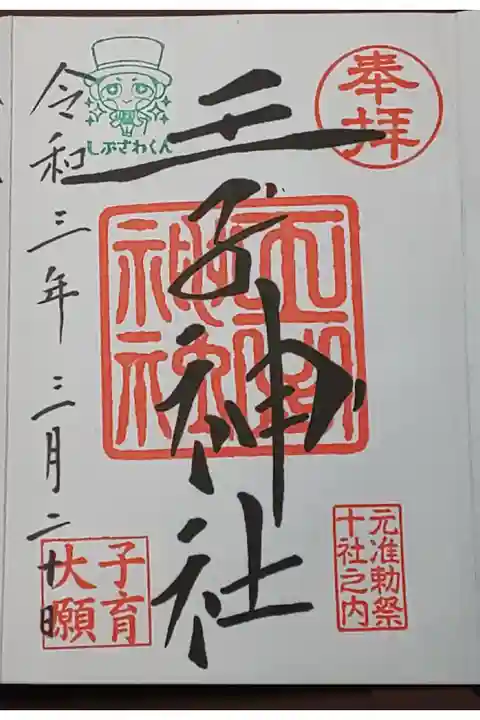 奉拝
王子神社
元准勅祭
十社之内
しぶさわくん
令和三年三月二十日
子育
大願